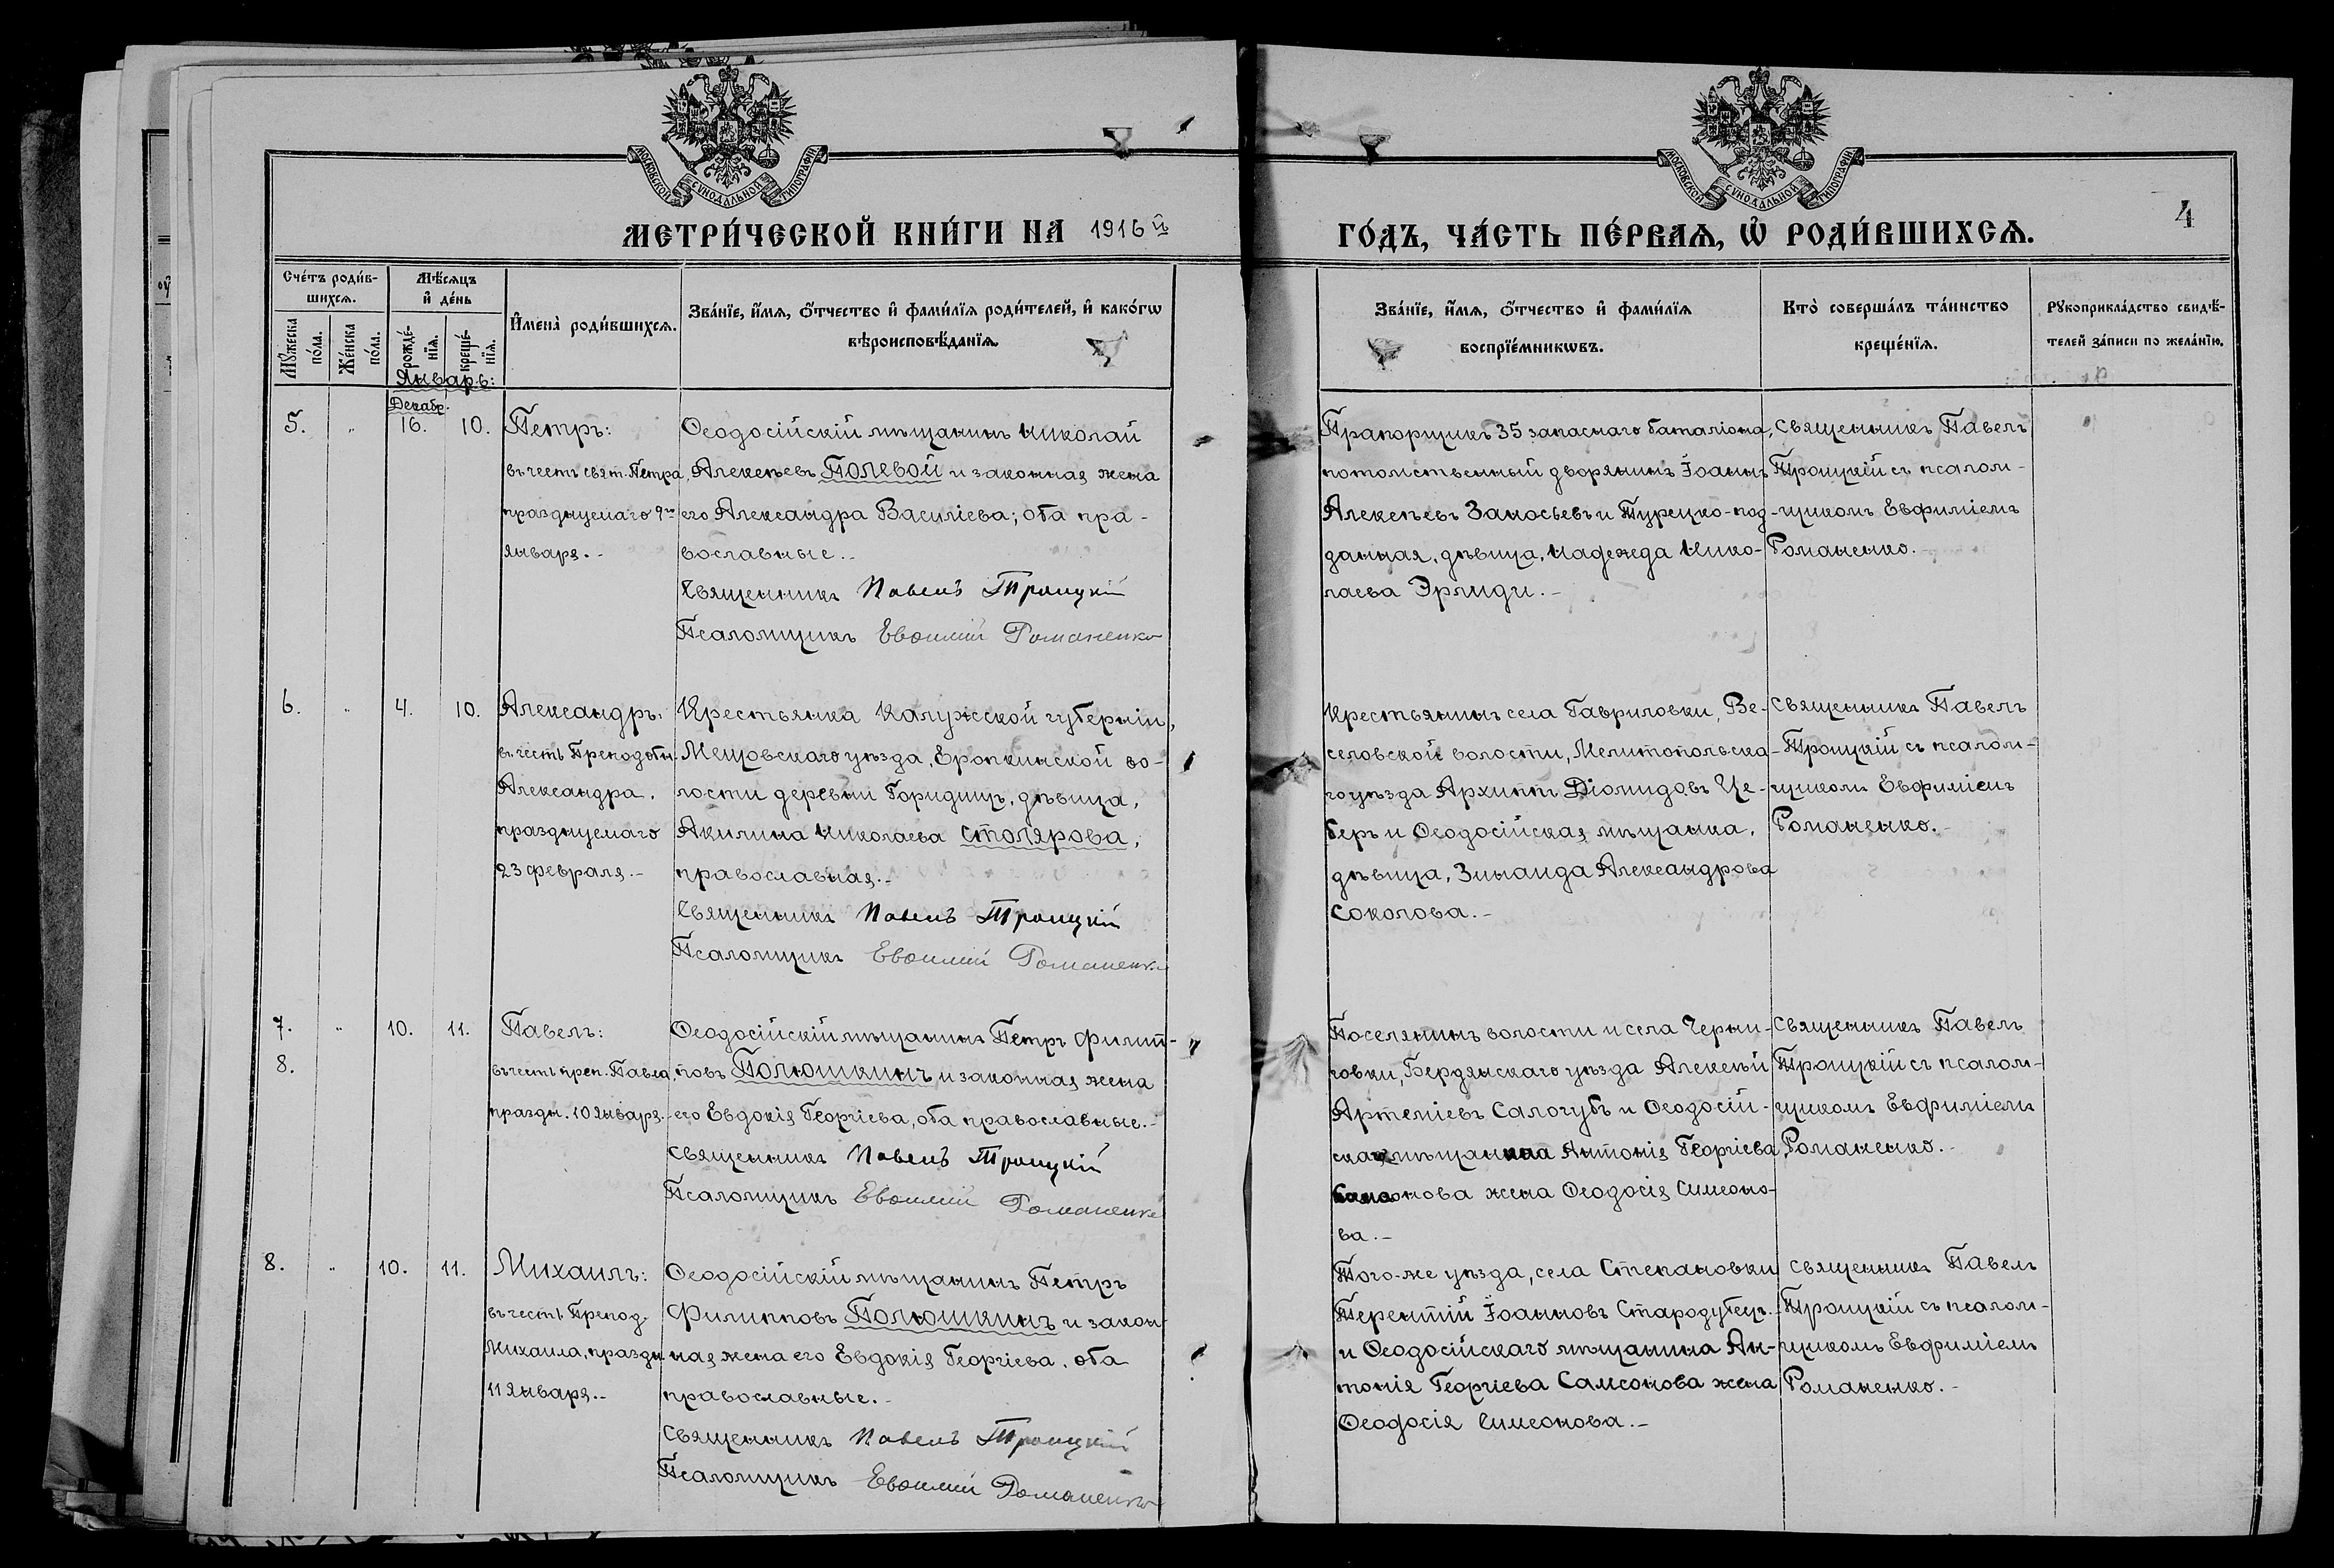 МОСКОВСКОЙ СѴНОДАЛЬНОЙ ТИПОГРАФІИ
МОСКОВСКОЙ СѴНОДАЛЬНОЙ ТИПОГРАФІИ
МЕТРИ́ЧЕСКОЙ КНИ́ГИ НА 1916й ГО́ДЪ, ЧА́СТЬ ПЕ́РВАѦ, Ѡ҆ РОДИ́ВШИХСѦ.
4
Сче́тъ роди́в-
шихсѧ.
Мꙋ́жеска
по́ла.
Же́нска
по́ла.
Мѣ́сѧцъ
и҆ де́нь
рожде́-
нїѧ.
креще́-
нїѧ.
И҆мена̀ роди́вшихсѧ.
Зва́нїе, и҆́мѧ, ѻ҆́тчество и҆ фами́лїѧ роди́телей, и҆ како́гѡ
вѣроисповѣ́данїѧ.
Зва́нїе, и҆́мѧ, ѻ҆́тчество и҆ фами́лїѧ
воспрїе́мникѡвъ.
Кто̀ соверша́лъ та́инство
креще́нїѧ.
Рꙋкоприкла́дство свидѣ́-
телей за́писи по жела́нїю.
Январь:
Декабр.
5. " 16. 10.
Петръ:
въ честь свят. Петра,
празднуемаго 9го
января.-
Ѳеодосійскій мѣщанинъ Николай
Алексѣевъ Полевой и законная жена
его Александра Василіева; оба пра-
вославные.-
Священникъ Павелъ Троицкій
Псаломщикъ Евѳимій Романенко
Прапорщикъ 35 запаснаго баталіона,
потомственный дворянинъ Іоаннъ
Алексѣевъ Заносьевъ и Турецко-под-
данная, дѣвица, Надежда Нико-
лаева Эрлиди.-
Священникъ Павелъ
Троицкій съ псалом-
щикомъ Евфиміемъ
Романенко.-
6. " 4. 10.
Александръ:
въ честь Преподобн.
Александра,
празднуемаго
23 февраля.-
Крестьянка Калужской губерніи,
Мещовскаго уѣзда, Еропкинской во-
лости деревни Горидищъ, дѣвица,
Акилина Николаева Столярова,
православная.-
Священникъ Павелъ Троицкій
Псаломщикъ Евѳимій Романенко
Крестьянинъ села Гавриловки, Ве-
селовской волости, Мелитопольска-
го уѣзда Архиппъ Діомидовъ Це-
беръ и Ѳеодосійская мѣщанка,
дѣвица, Зинаида Александрова
Соколова.-
Священникъ Павелъ
Троицкій съ псалом-
щикомъ Евфиміемъ
Романенко.-
7. " 10. 11.
8.
Павелъ:
въ честь преп. Павла,
праздн. 10 января.-
Ѳеодосійскій мѣщанинъ Петръ Филип-
повъ Полюшкинъ и законная жена
его Евдокія Георгіева, оба православные.-
Священникъ Павелъ Троицкій
Псаломщикъ Евѳимій Романенко
Поселянинъ волости и села Черни-
говки, Бердянскаго уѣзда Алексѣй
Артеміевъ Сологубъ и Ѳеодосій-
скаго мѣщанина Антонія Георгіева
Самсонова жена Ѳеодосія Симеоно-
ва.-
Священникъ Павелъ
Троицкій съ псалом-
щикомъ Евфиміемъ
Романенко.-
8. " 10. 11.
Михаилъ:
въ честь Препод.
Михаила, праздн.
11 января.-
Ѳеодосійскій мѣщанинъ Петръ
Филипповъ Полюшкинъ и закон-
ная жена его Евдокія Георгіева, оба
православные.-
Священникъ Павелъ Троицкій
Псаломщикъ Евѳимій Романенко
Того-же уѣзда, села Степановки
Терентій Іоанновъ Стародубец.
и Ѳеодосійскаго мѣщанина Ан-
тонія Георгіева Самсонова жена
Ѳеодосія Симеонова.-
Священникъ Павелъ
Троицкій съ псалом-
щикомъ Евфиміемъ
Романенко.-